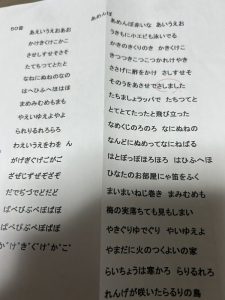 ちひ音
あえいうえおあお
かけきくけこかこ
させしすせそさそ
たてちつてとたと
なねにぬねのなの
はへひふへほはほ
まめみむめもまも
やえいゆえよやよ
られりるれろらろ
わえいうえをわを ん
がげぎぐげごがご
ざぜじずぜぞざぞ
だでぢづでどだど
ばべびぶべぼばぼ
ぱぺぴぷぺぽぱぽ
か゜け゜き゜く゜け゜こ゜か゜こ゜
あめんぼ
あめんぼ赤いな あいうえお
うきもに小エビも泳いでる
かきのきくりのき かきくけこ
きつつきこつこつかれけやき
ささげに酢をかけ さしすせそ
そのうおあさせでさしました
たちましょラッパで たちつてと
とてとてたったと飛び立った
なめくじのろのろ なにぬねの
なんどにぬめってなにねばる
はとぽっぽほろほろ はひふへほ
ひなたのお部屋にゃ笛をふく
まいまいねじ巻き まみむめも
梅の実落ちても見もしまい
やきぐりゆでぐり やいゆえよ
やまだに火のつくよいの家
らいちょうは寒かろ らりるれろ
れんげが咲いたらるりの鳥